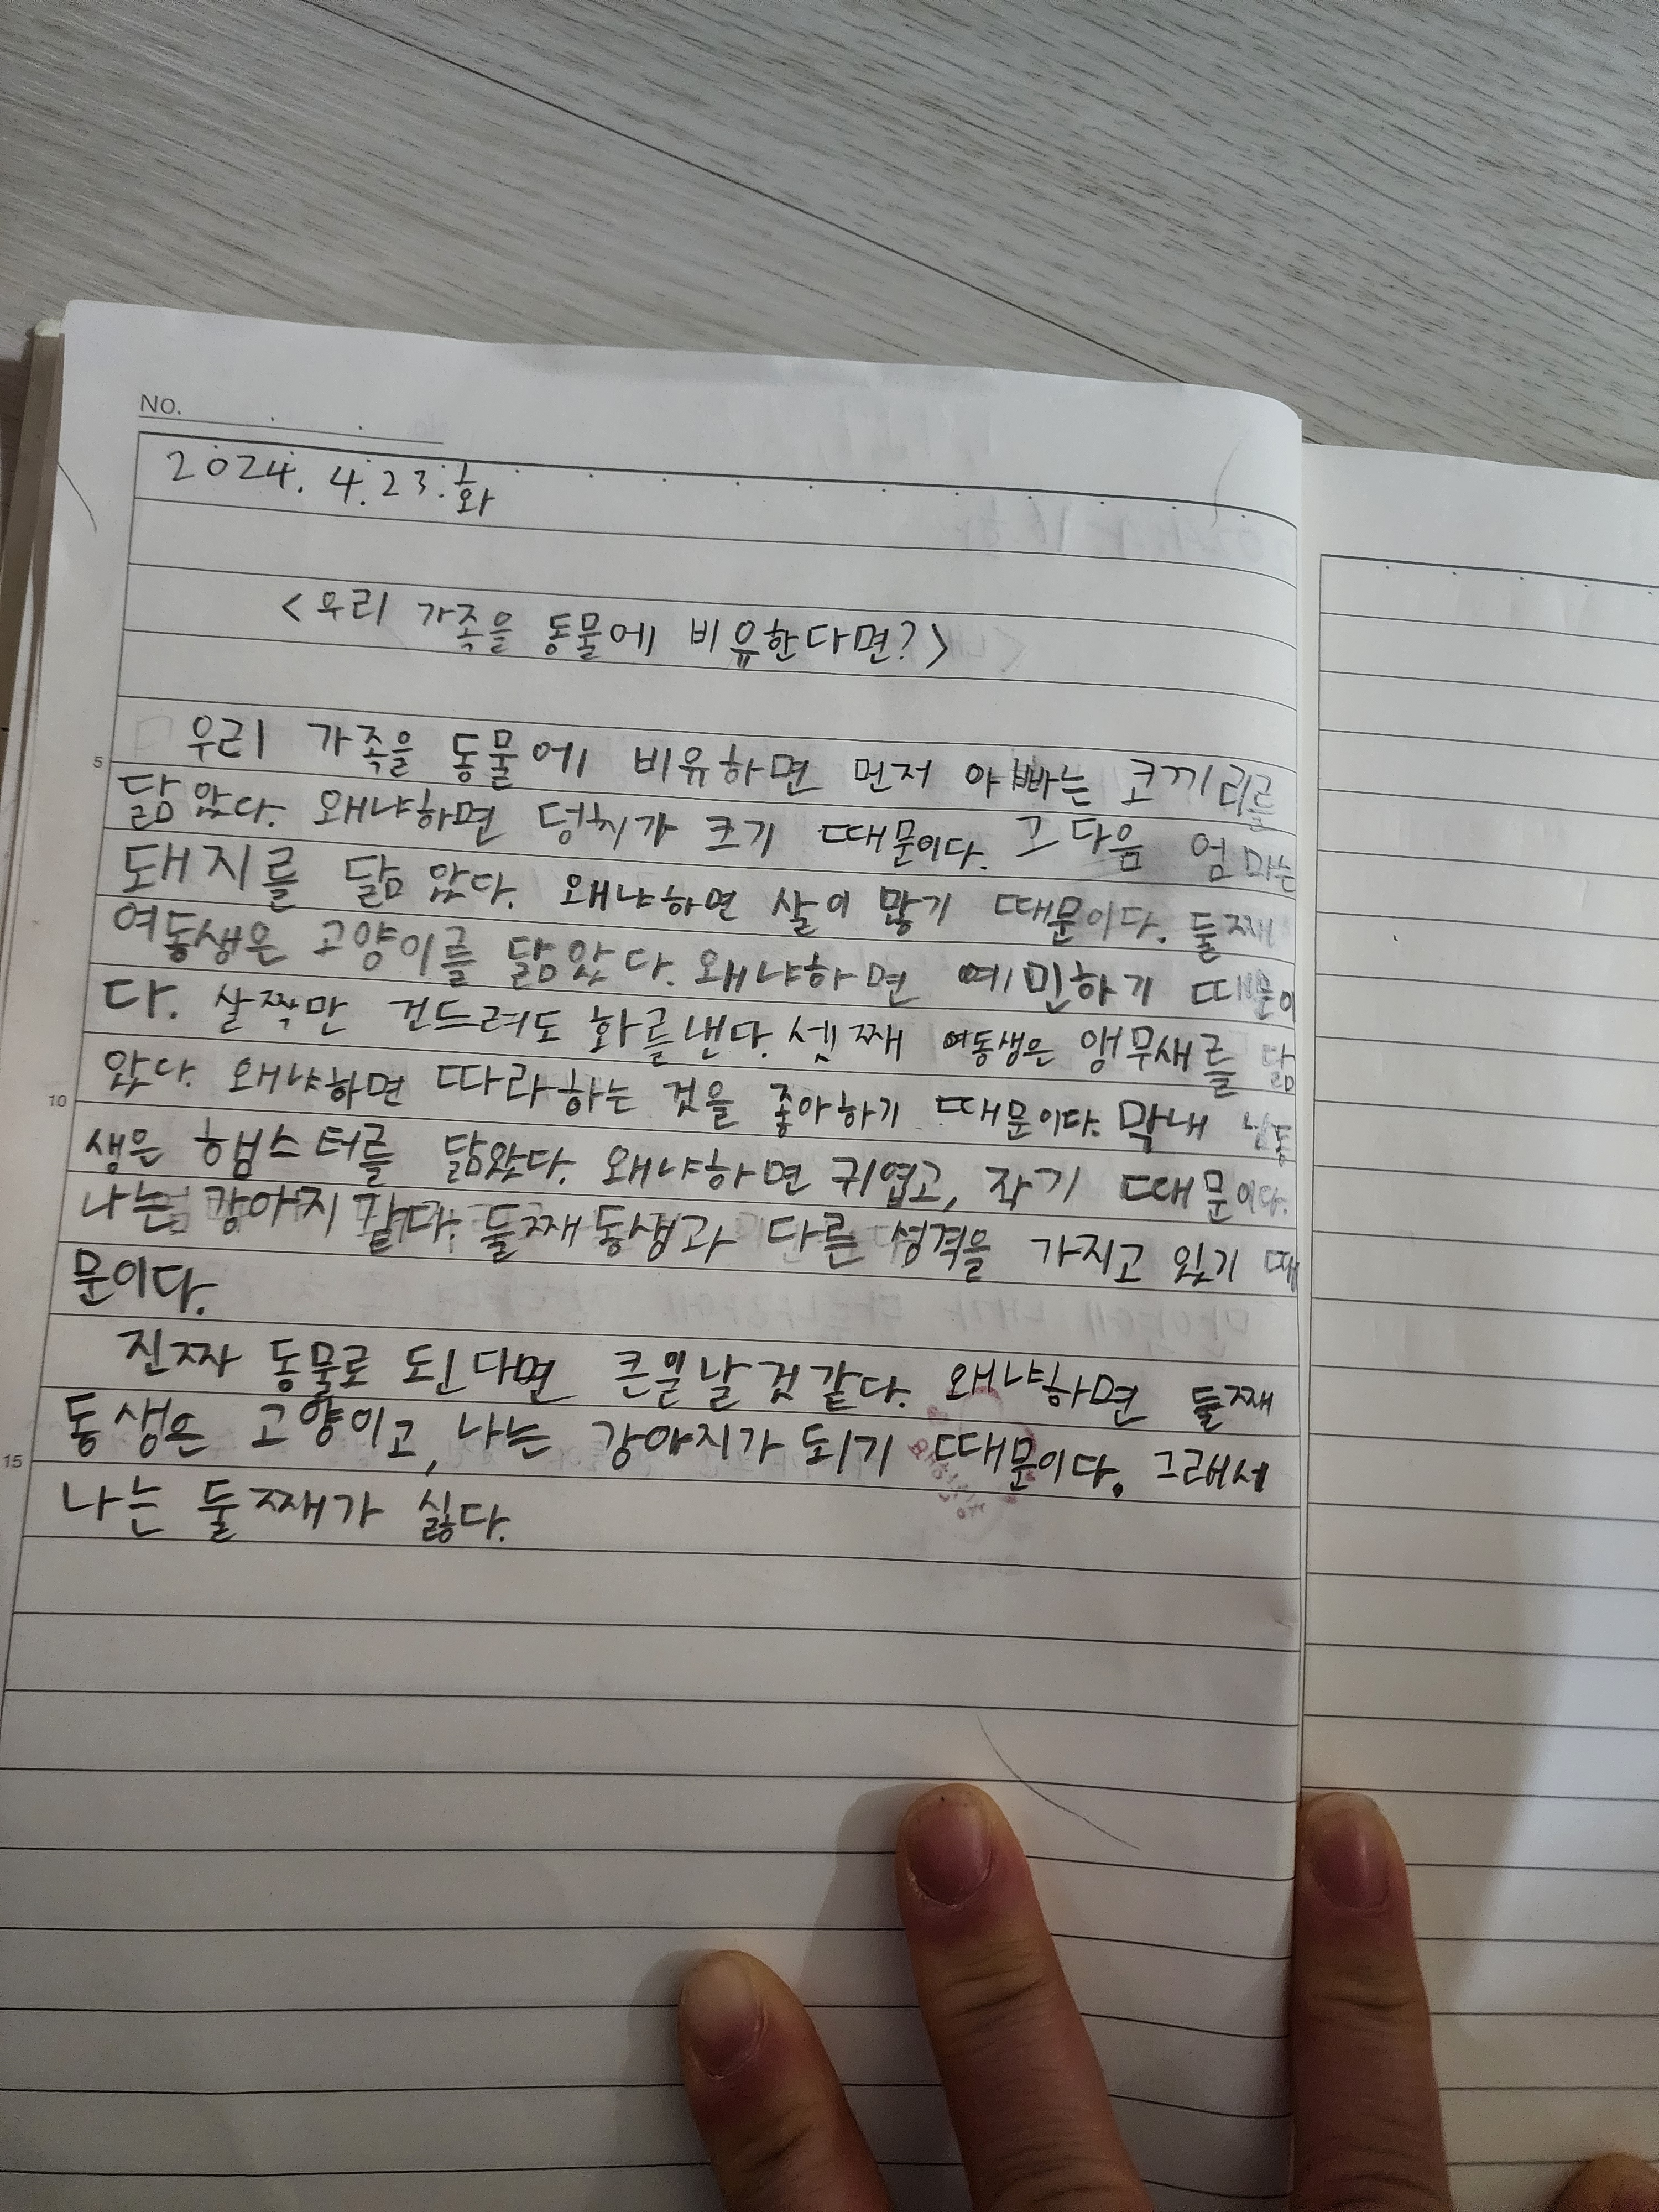 NO.
2024. 4. 23. 화
<우리 가족을 동물에 비유한다면?>
우리 가족을 동물에 비유하면 먼저 아빠는 코끼리를
5
닮았다. 왜냐하면 덩치가 크기 때문이다. 그 다음 엄마는
돼지를 닮았다. 왜냐하면 살이 많기 때문이다. 둘째
여동생은 고양이를 닮았다. 왜냐하면 예민하기 때문이
다. 살짝만 건드려도 화를낸다. 셋째 여동생은 앵무새를 닮
았다. 왜냐하면 따라하는 것을 좋아하기 때문이다. 막내 남동
10
생은 햄스터를 닮았다. 왜냐하면 귀엽고, 작기 때문이다.
나는 강아지 같다. 둘째동생과 다른 성격을 가지고 있기 때
문이다.
진짜 동물로 된다면 큰일날것같다. 왜냐하면 둘째
동생은 고양이고, 나는 강아지가 되기 때문이다. 그래서
15
나는 둘째가 싫다.